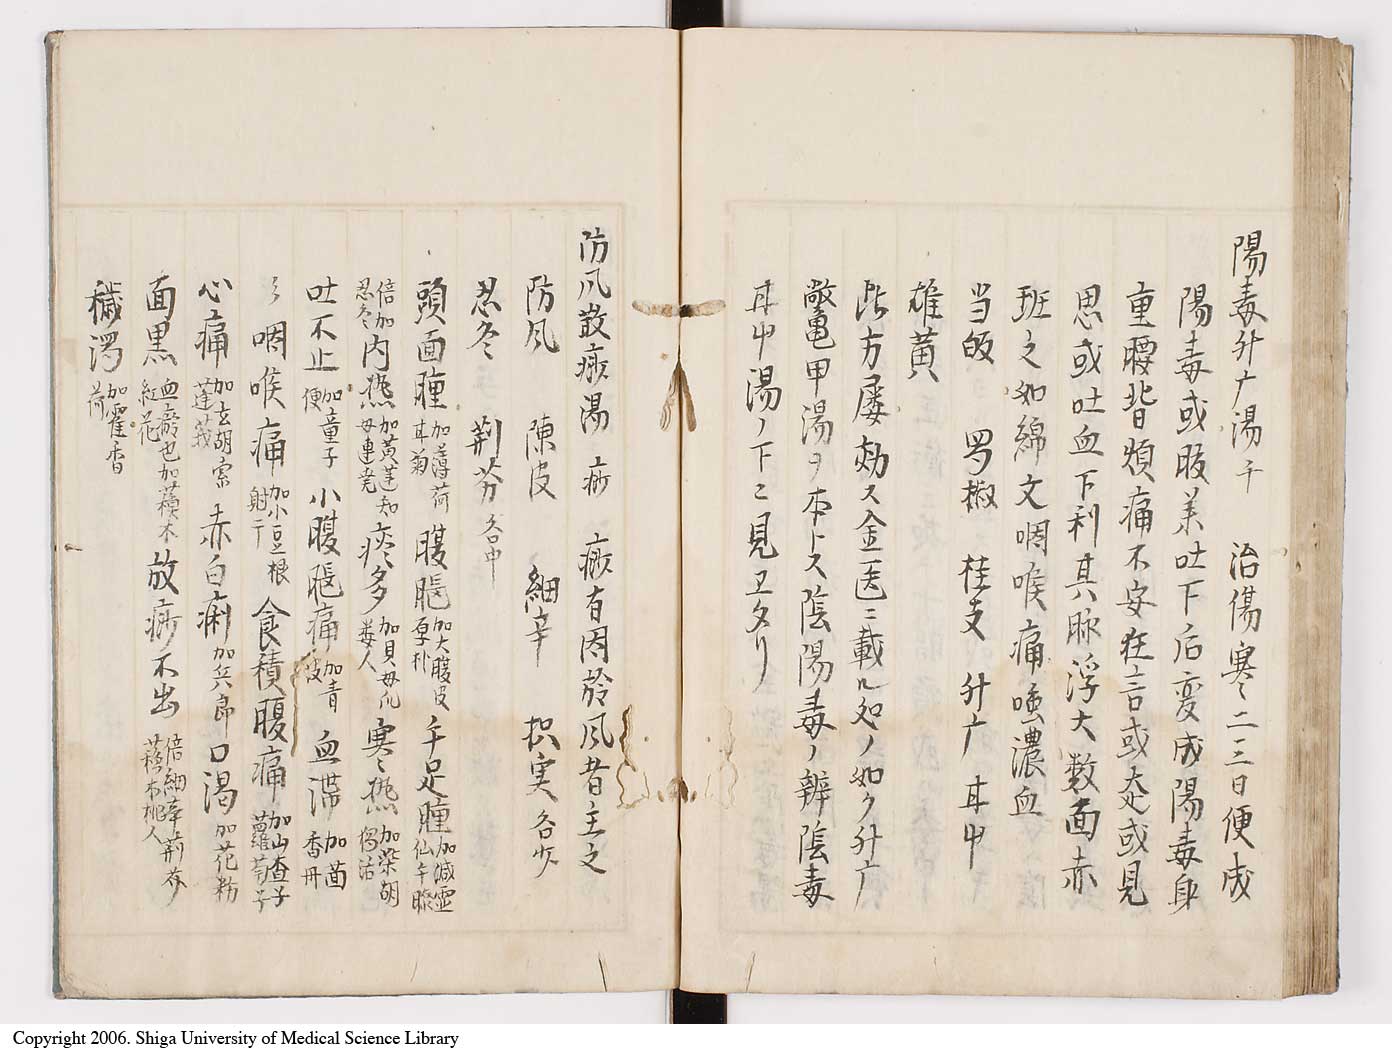 陽毒升广湯千 治傷寒〻二三日便成
陽毒或服薬吐下后変成陽毒身
重腰背煩痛不安狂言或走或見
思或吐血下利其脉浮大数面赤
班之如綿文咽喉痛唾濃血
当皈 蜀椒 桂支 升广 甘中
雄黄
此方屡効ス金医ニ載ル処ノ如ク升广
鱉亀甲湯ヲ本トス陰陽毒ノ辨陰毒
甘中湯ノ下ニ見ヱタリ
防风散痧湯 痧 痧有因於风者主之
防风 陳皮 細辛 枳実各少
忍冬 荆芥各中
頭面腫加薄荷甘菊 腹脹加大腹皮厚朴 手足腫加減霊仙牛膝
倍加忍冬内热加黄連知母連尭 痰多加貝母瓜蒌人 寒〻热加柴胡独活
吐不止加童子便 小腹脹痛加青皮 血滞加茴香丹
咽喉痛加小豆根射干 食積腹痛加山査子蘿蔔子
心痛加玄胡索莲莪 赤白痢加兵郎 口渇加花粉
面黒血瘀也加蘓木紅花 放痧不出倍細辛荆芥蘓木桃人
穢濁加霍香荷
Copyright 2006. Shiga University of Medical Science Library